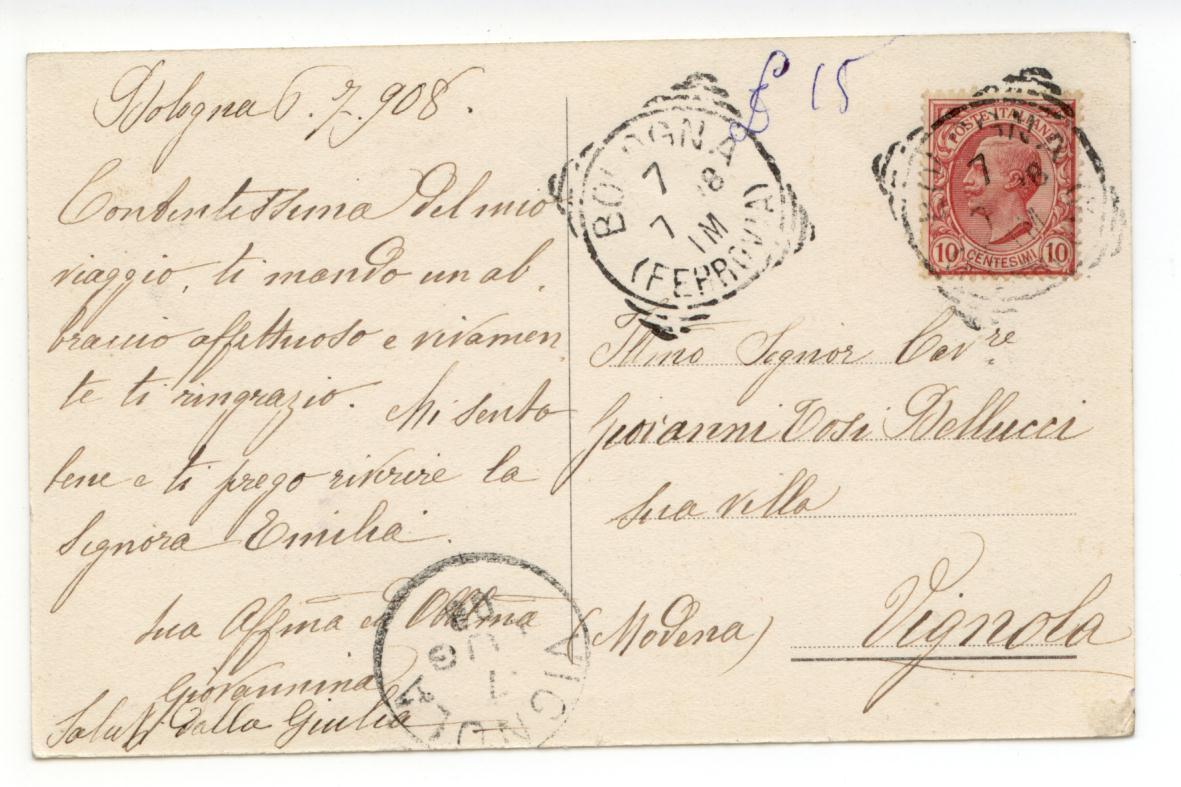 Bologna 6.7.908.
Contentissima del mio
viaggio, ti mando un ab,
braccio affettuoso e vivamen,
te ti ringrazio. Mi sento
bene e ti prego riverire la
Signora Emilia.
sua Affma ed Obblma
Giovannina
Saluti dalla Giulia
£ 15
BOLOGNA
7 7 08
1M
(FERROVIA)
POSTE ITALIANE
10 CENTESIMI 10
Illmo Signor Cavre
Giovanni Tosi Bellucci
sua villa
Vignola
(Modena)
VIGNOLA
LUG
08